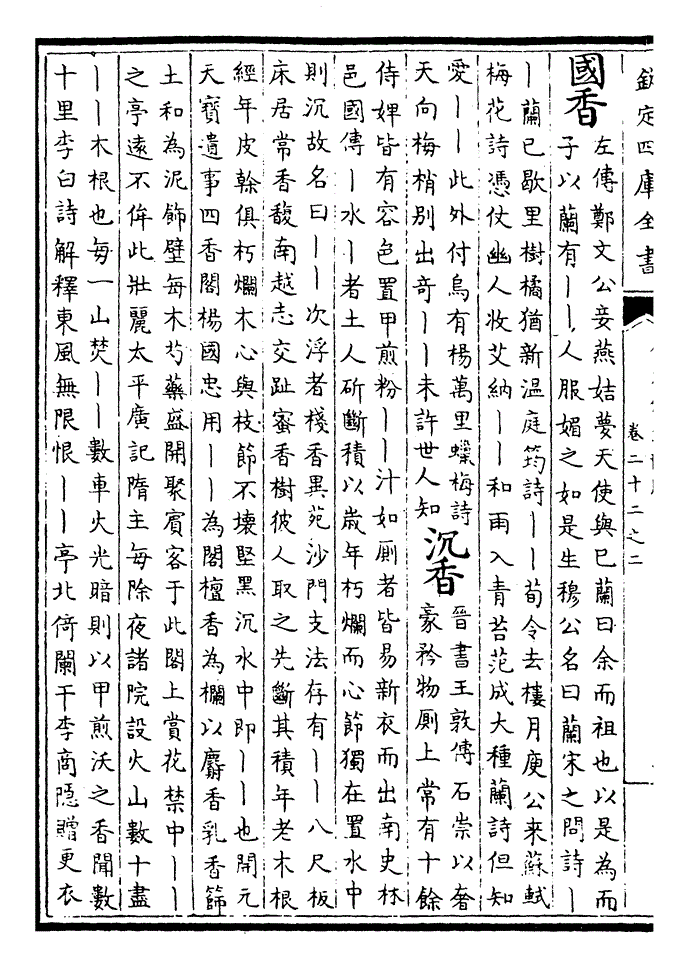 欽定四庫全書
卷二十二之二
國香
左傳鄭文公妾燕姞夢天使與已蘭曰余而祖也以是為而
子以蘭有丨丨人服媚之如是生穆公名曰蘭宋之問詩丨
丨蘭已歇里樹橘猶新温庭筠詩丨丨荀令去樓月庾公来蘇軾
梅花詩憑仗幽人收艾納丨丨和雨入青苔范成大種蘭詩但知
愛丨丨此外付烏有楊萬里蠟梅詩
天向梅梢別出奇丨丨未許世人知
沉香
晉書王敦傳石崇以奢
豪矜物厠上常有十餘
侍婢皆有容色置甲煎粉丨丨汁如厠者皆易新衣而出南史林
邑國傳丨水丨者土人斫斷積以歲年朽爛而心節獨在置水中
則沉故名曰丨丨次浮者棧香異苑沙門支法存有丨丨八尺板
床居常香馥南越志交趾蜜香樹彼人取之先斷其積年老木根
經年皮榦俱朽爛木心與枝節不壞堅黑沉水中即丨丨也開元
天寶遺事四香閣楊國忠用丨丨為閣檀香為欄以麝香乳香篩
土和為泥飾壁每木芍藥盛開聚賓客于此閣上賞花禁中丨丨
之亭遠不侔此壯麗太平廣記隋主每除夜諸院設火山數十盡
丨丨木根也每一山焚丨丨數車火光暗則以甲煎沃之香聞數
十里李白詩解釋東風無限恨丨丨亭北倚闌干李商隠贈更衣